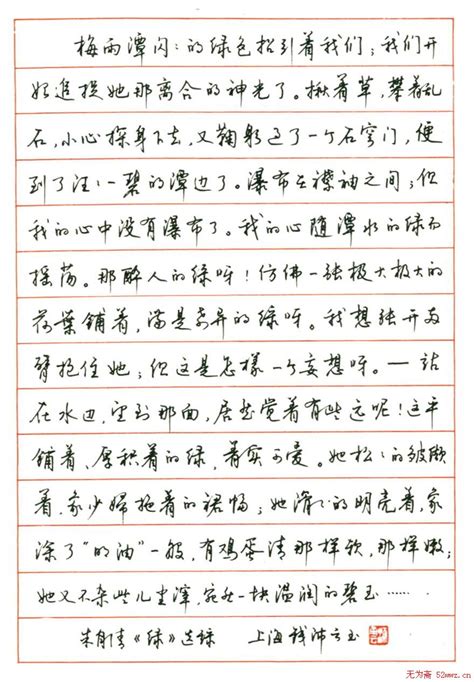 梅雨潭闪:的绿色招引着我们;我们开
始追捉她那离合的神光了。揪着草,攀着乱
石,小心探身下去,又鞠躬过了一个石穹门,便
到了汪:一碧的潭边了。瀑布在襟袖之间;但
我的心中没有瀑布了。我的心随潭水的绿而
摇荡。那醉人的绿呀!仿佛一张极大极大的
荷叶铺着,满是奇异的绿呀。我想张开两
臂抱住她;但这是怎样一个妄想呀。—站
在水边,望到那面,居然觉着有些远呢!这平
铺着、厚积着的绿,着实可爱。她松:的皱缬
着,象少妇拖着的裙幅;她滑:的明亮着,象
涂了“明油”一般,有鸡蛋清那样软,那样嫩;
她又不杂些儿尘滓,宛然一块温润的碧玉……
朱自清《绿》选录 上海钱沛云书
无为斋 52wwz.cn